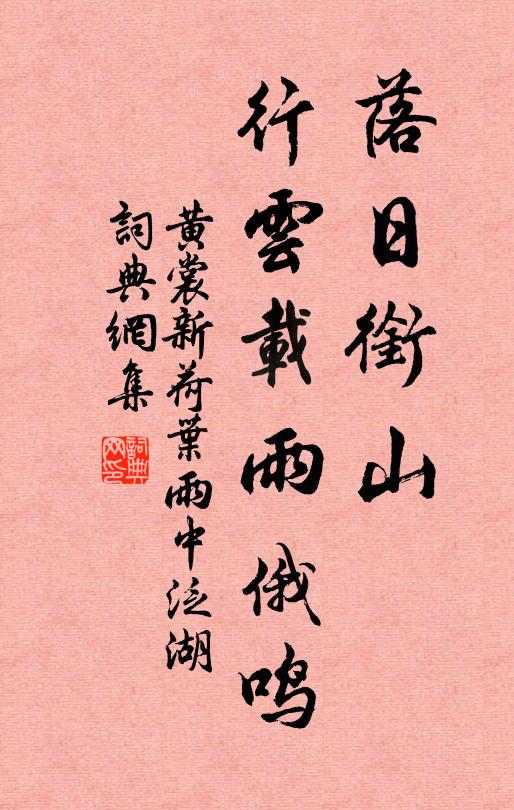 落日銜山
行雲載雨俄鳴
黄裳新荷葉雨中泛湖
詞典網集
詞典網印